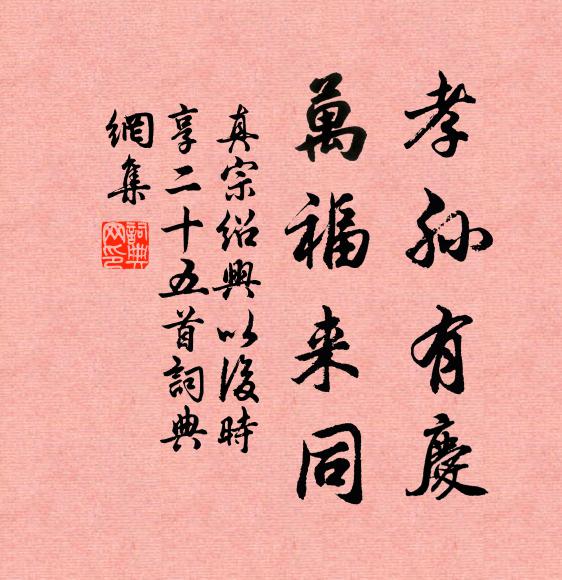 孝孙有慶
萬福来同
真宗绍興以後時
享二十五首詞典
網集
詞典網印